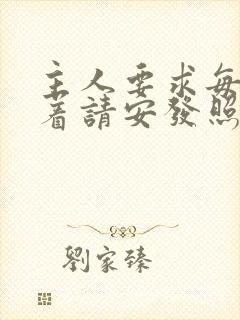 主人要求每
着請安發照
劉家臻